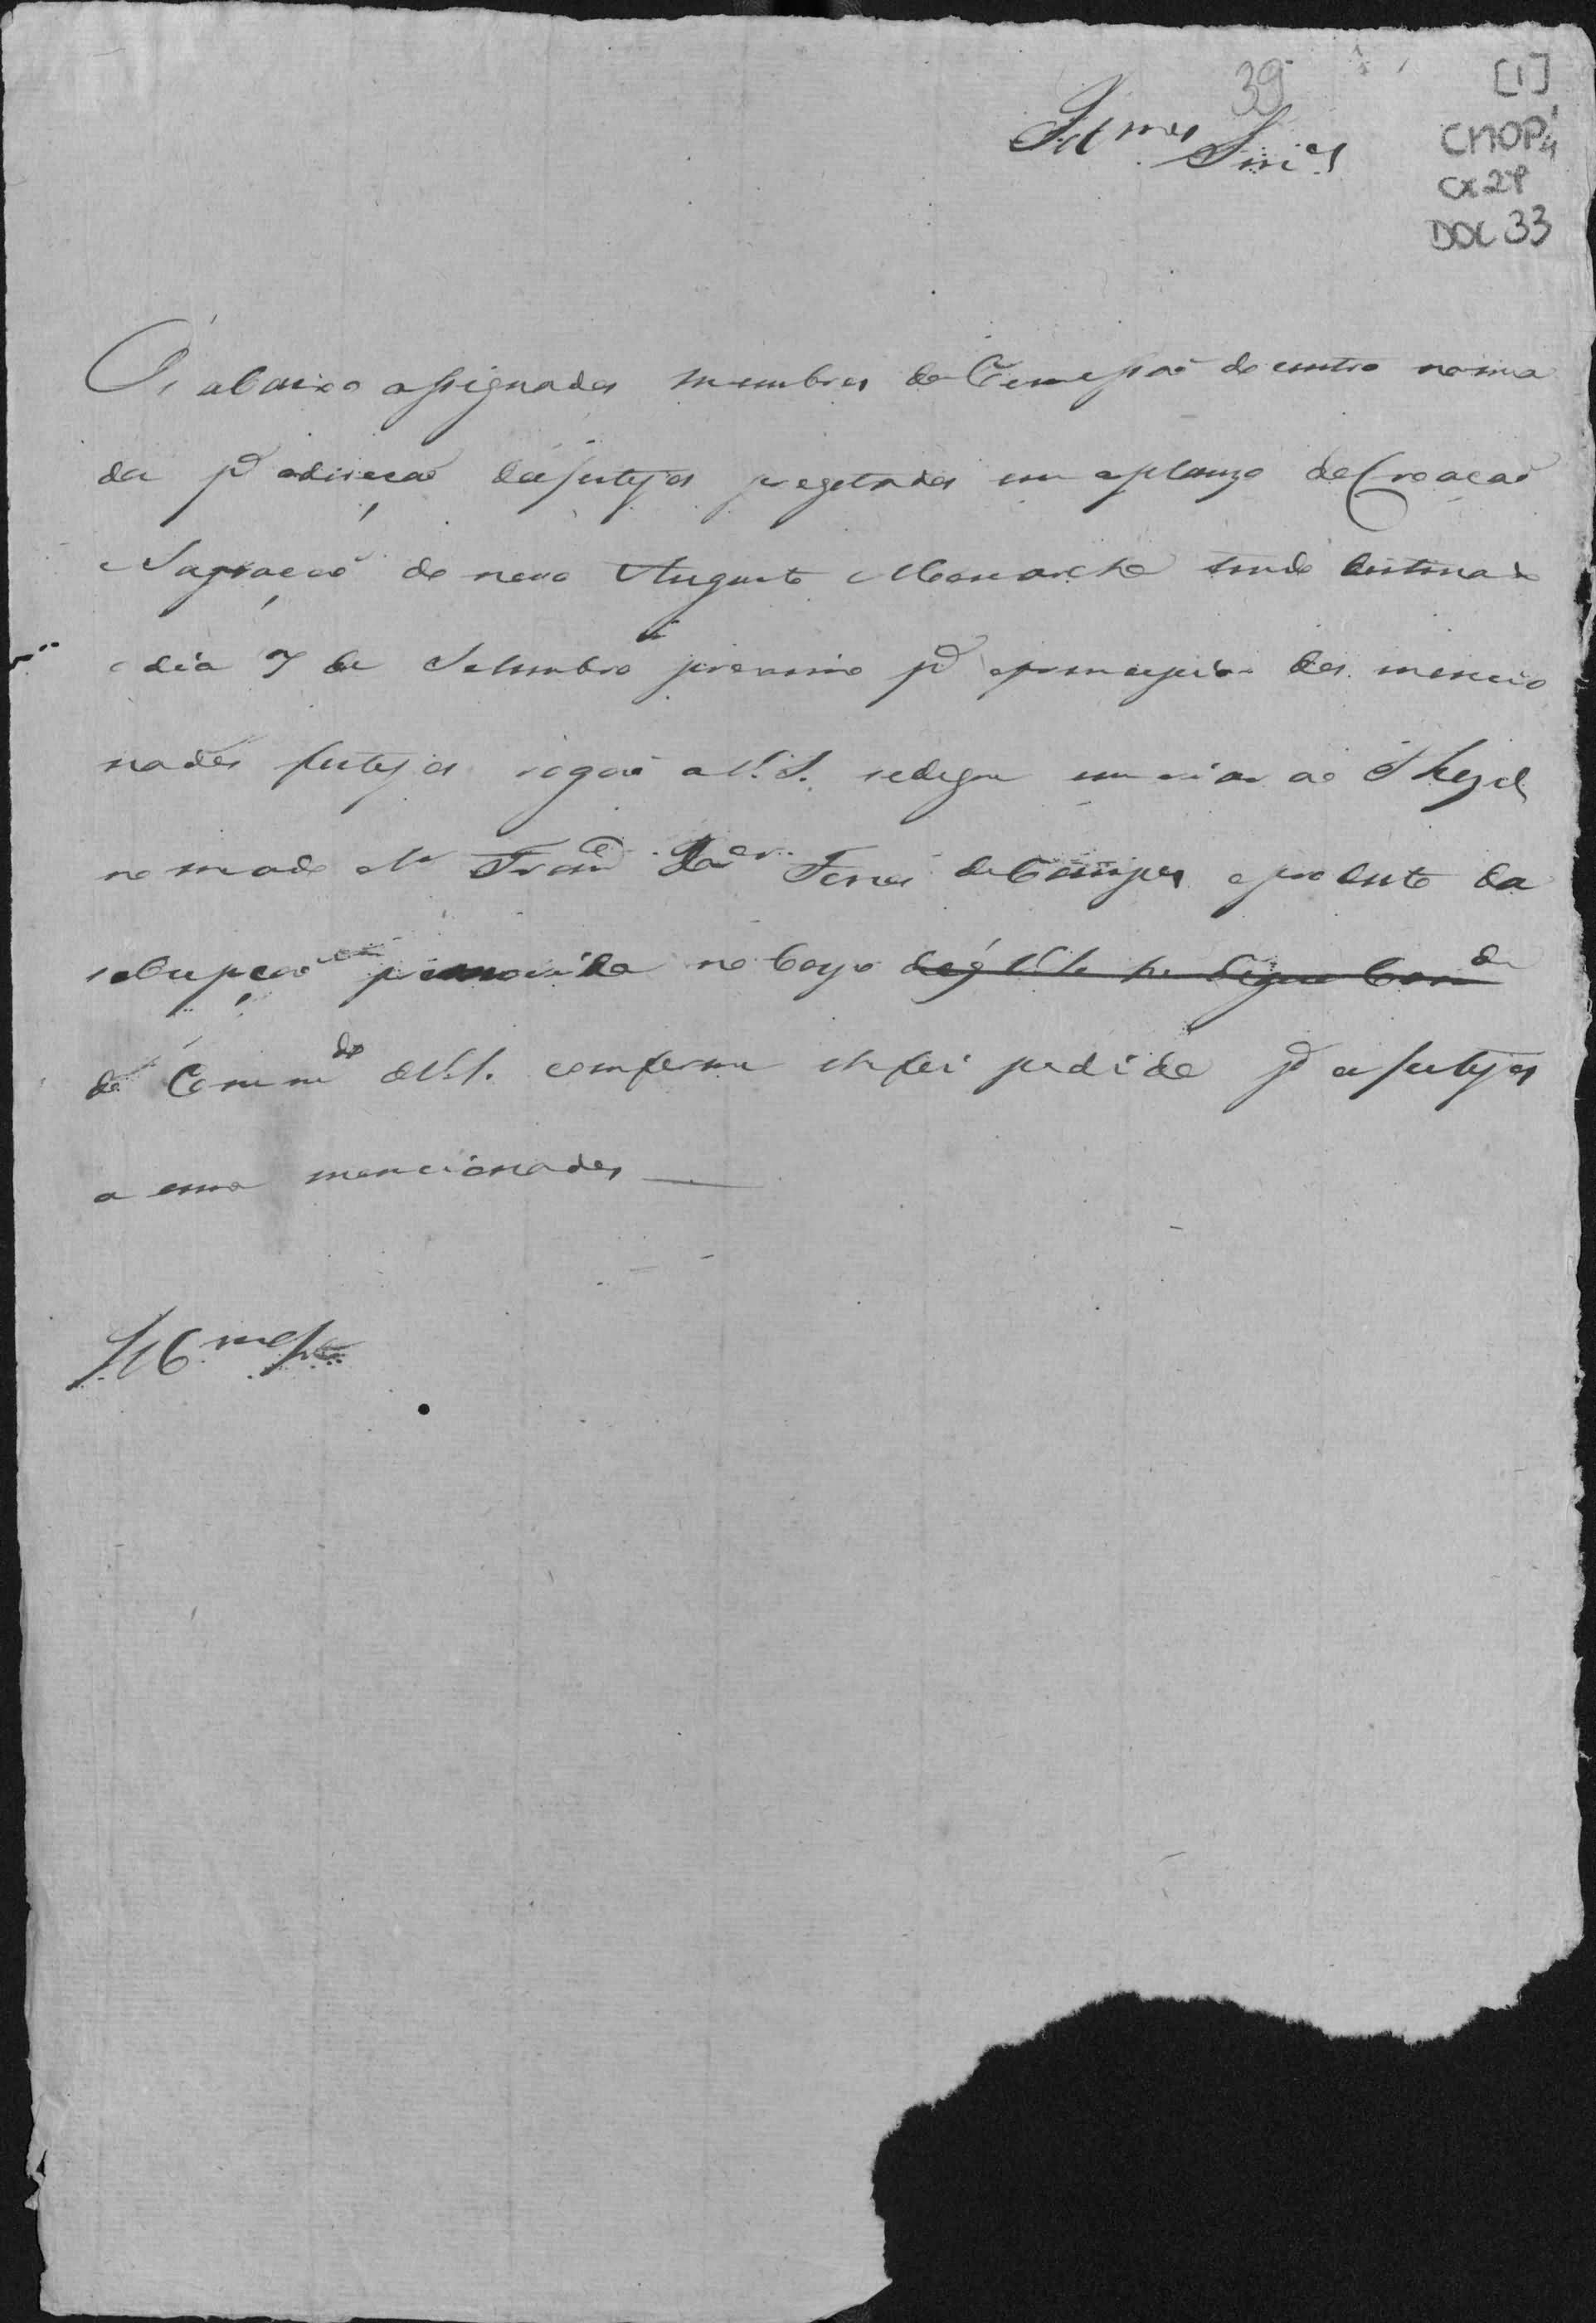 39
[1]
CMOP4
CX 29
DOC 33
Ill.mos Snr.es
Os abaixo assignados membros da Commissaõ do centro noma
dos pª adireçaõ dasfestejos em aplauzo da Croaçaõ
e Sagraçaõ do novo Augusto Monarcha tendo destinado
o dia 7 de Setembro proximo pª oprencipio dos mencio
nados festejos rogaõ a V. S. sedigne inviar ao
nomiado o Sr Fran.co Xa.er de Campos oproduto da
promovida no Corpo
do Comm.do de V.S. conforme lhefoi pedido pª os festejos
a sima mencionados
Ill.mo Sr